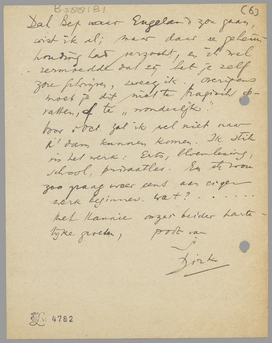 B3081B1 (6)
Dat Bep naar Engeland zou gaan,
wist ik al; maar daar ze geheim-
houding had verzocht, en ik wel
vermoedde dat ze het je zelf
zou schrijven, zweeg ik. Overigens
moet je dit niet te tragisch op-
vatten, of te "wonderlijk".
Voor ... zal ik wel niet naar
A'dam kunnen komen. Ik stik
in het werk: Extra, bloemlezing,
school, privaatles. En ik zou
zoo graag weer eens aan eigen
werk beginnen. Wat? ......
Met Hannie onzer beider harte-
lijke groeten, poot van
Dirk
4782